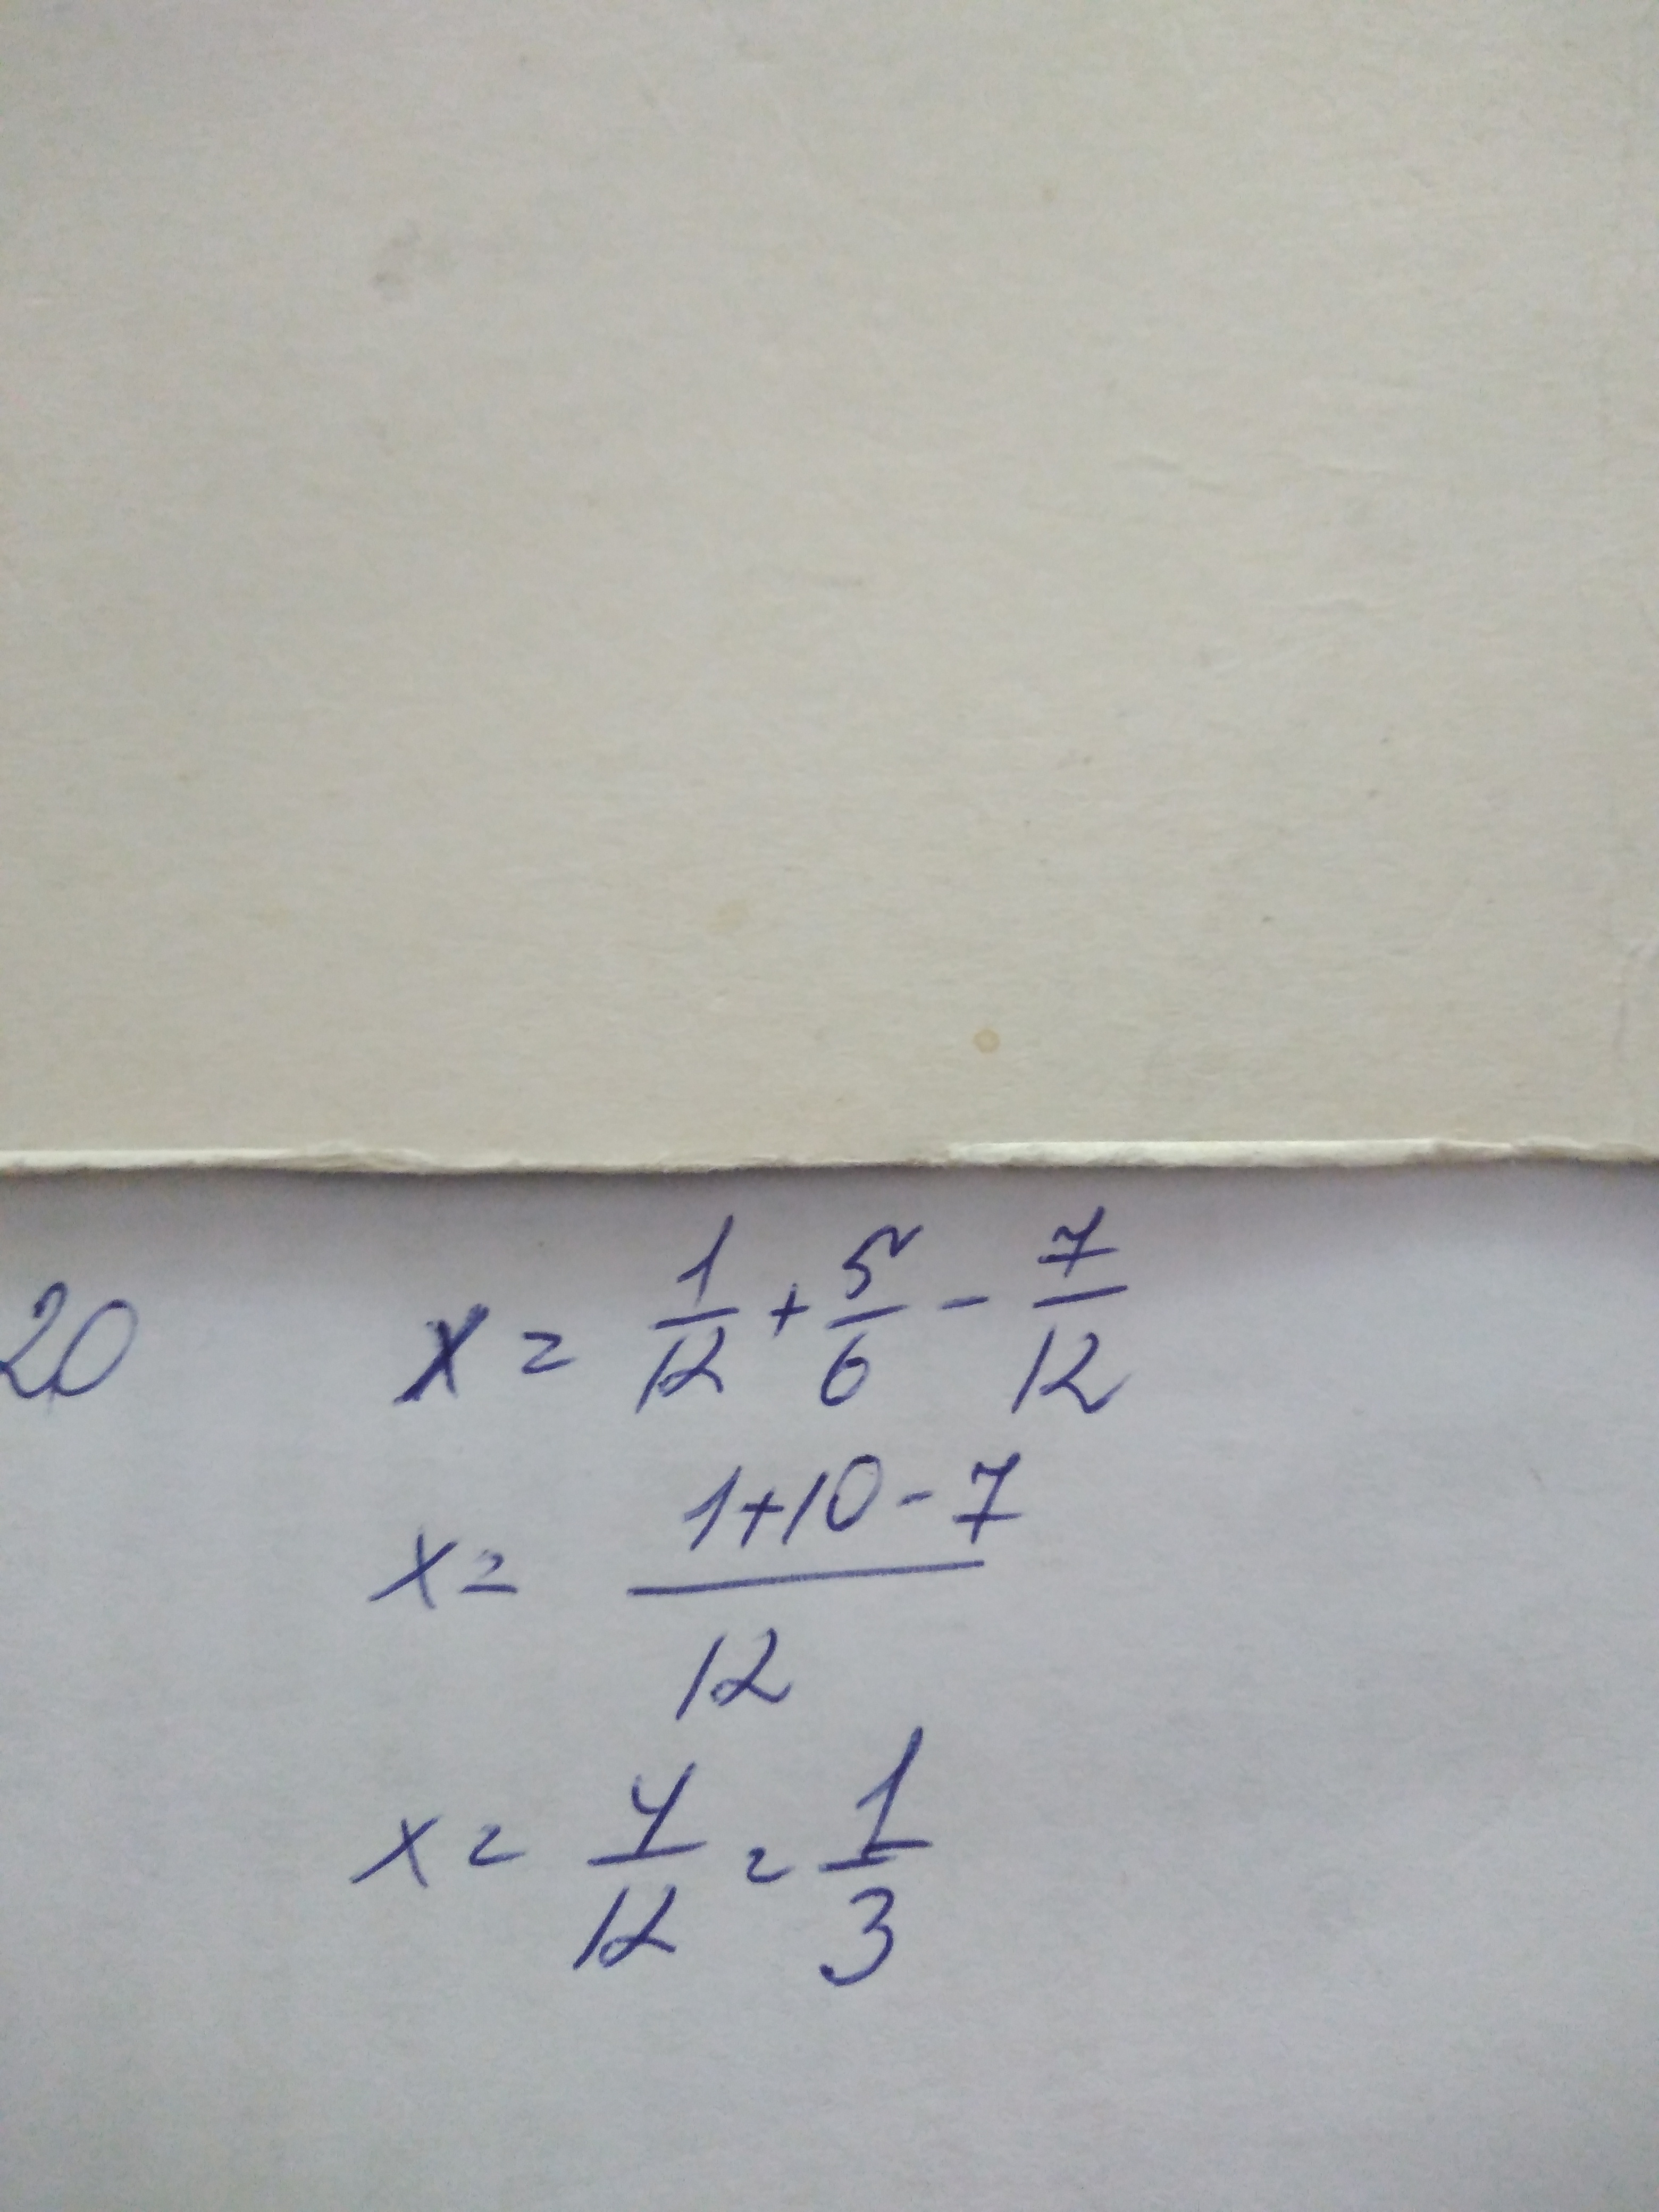 20 x = 1/12 + 5/6 - 7/12
x = (1+10-7)/12
x = 4/12 = 1/3